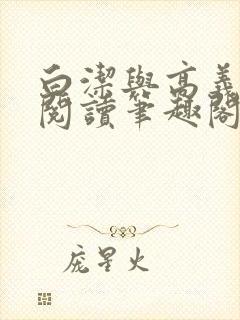 白潔與高義
閱讀筆趣閣
庞星火